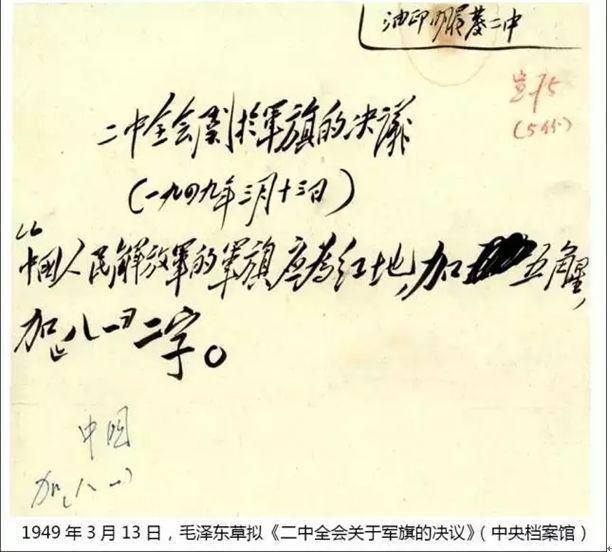 油印 二中
李 75
(5份)
二中全会关于军旗的决议
(一九四九年三月十三日)
中國人民解放軍的軍旗应为红地,加五角星,
加“八一”二字。
中国
加“八一”
1949年3月13日,毛泽东草拟《二中全会关于军旗的决议》(中央档案馆)